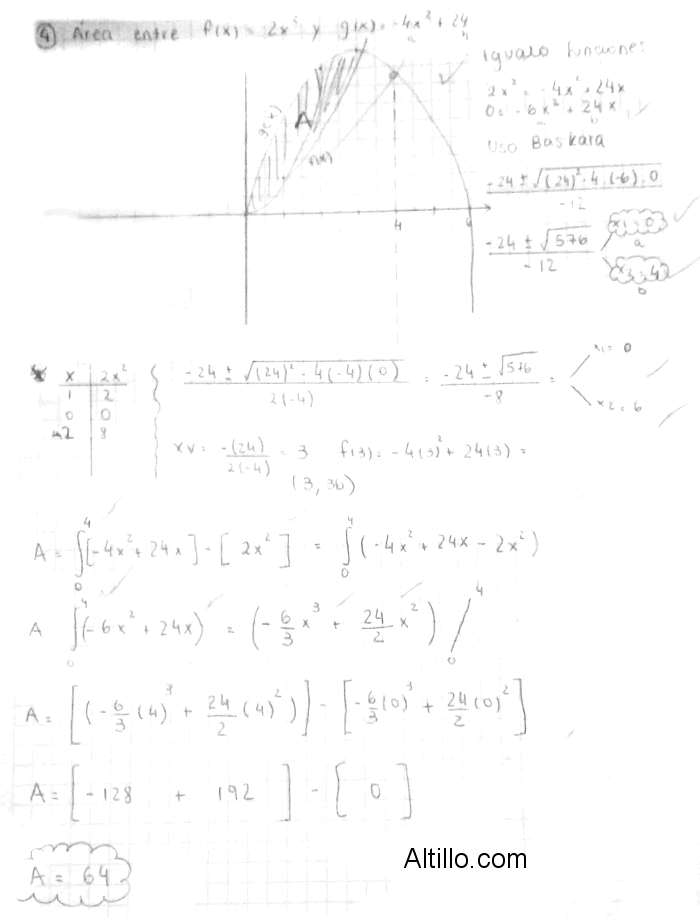 4) Área entre f(x) = 2x² y g(x) = -4x² + 24
a b
Igualo funciones
2x² = -4x² + 24x
0 = -6x² + 24x
a b
Uso Baskara
-24 ± √(24)² - 4.(-6).0 / -12
-24 ± √576 / -12
x1 = 0
a
x2 = 4
b
g(x)
A
f(x)
4
6
x | 2x²
1 | 2
0 | 0
2 | 8
-24 ± √(24)² - 4(-4)(0) / 2(-4) = -24 ± √576 / -8 =
x1 = 0
x2 = 6
xv = -(24) / 2(-4) = 3 f(3) = -4(3)² + 24(3) =
(3, 36)
A = ∫₀⁴ [-4x² + 24x] - [2x²] = ∫₀⁴ (-4x² + 24x - 2x²)
A ∫₀⁴ (-6x² + 24x) = (-6/3 x³ + 24/2 x²) /₀⁴
A = [(-6/3 (4)³ + 24/2 (4)²)] - [-6/3 (0)³ + 24/2 (0)²]
A = [-128 + 192] - [0]
A = 64
Altillo.com